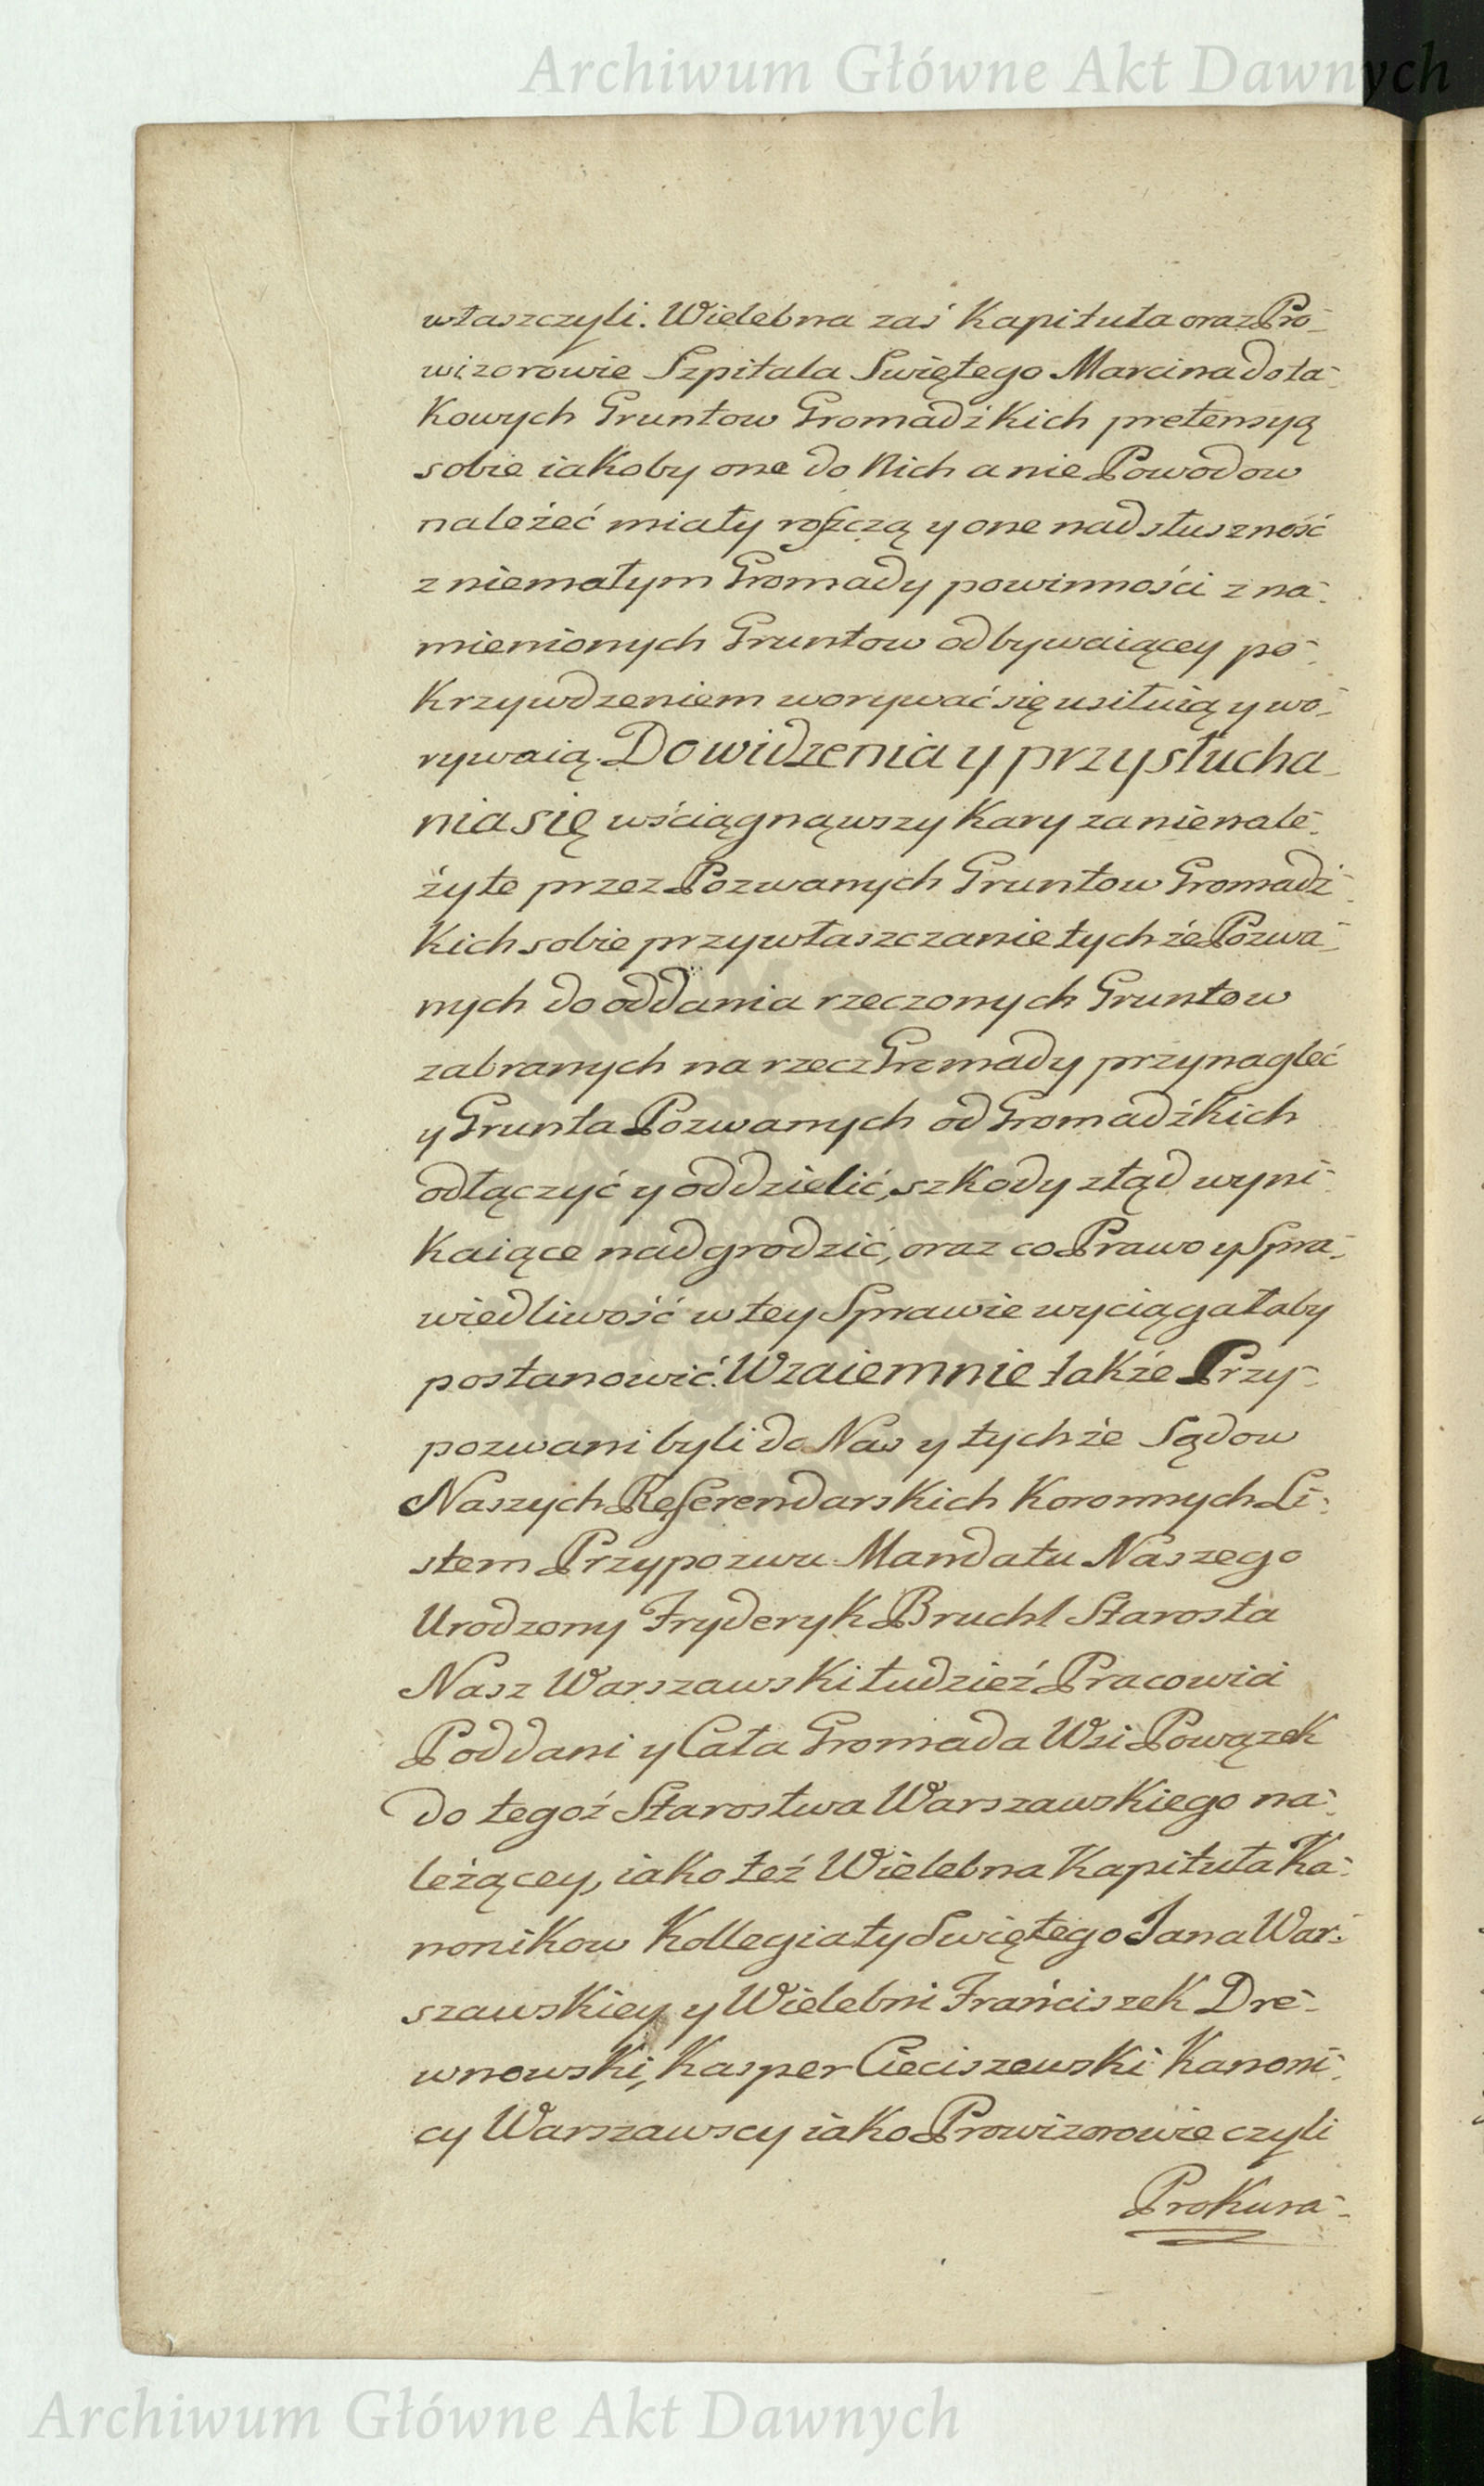 Archiwum Główne Akt Dawnych
właszczyli. Wielebna zaś Kapituła oraz Pro-
wizorowie Szpitala Swiętego Marcina do ta-
Kowych Gruntow Gromadźkich pretensyą
sobie iakoby one do Nich a nie Powodow
należeć miały roszczą y one nad słuszność
z niemałym Gromady powinności z na-
mienionych Gruntow odbywaiącey po-
Krzywdzeniem worywać się usiłuią y wo-
rywaią. Do widzenia y przysłucha-
nia się wściągnąwszy Kary za nienale-
żyte przez Pozwanych Gruntow Gromadź-
Kich sobie przywłaszczanie tychże Pozwa-
nych do oddania rzeczonych Gruntow
zabranych na rzecz Gromady przynaglić
y Grunta Pozwanych od Gromadźkich
odłączyć y oddzielić, szkody ztąd wyni-
Kaiące nadgrodzić, oraz co Prawo y Spra-
wiedliwość w tey Sprawie wyciągałaby
postanowić. Wzaiemnie także Przy-
pozwani byli do Nas y tychże Sądow
Naszych Referendarskich Koronnych Li-
stem Przypozwu Mandatu Naszego
Urodzony Fryderyk Bruchl Starosta
Nasz Warszawski tudzież Pracowici
Poddani y Cała Gromada Wsi Powązek
do tegoż Starostwa Warszawskiego na-
leżącey, iako też Wielebna Kapituła Ka-
nonikow Kollegiaty Swiętego Jana War-
szawskiey y Wielebni Franciszek Dre-
wnowski, Kasper Cieciszewski Kanoni-
cy Warszawscy iako Prowizorowie czyli
Prokura-
Archiwum Główne Akt Dawnych